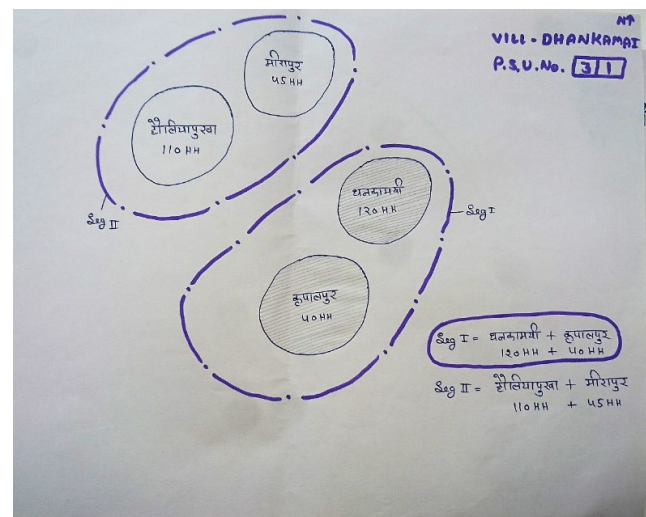 N↑
VILL - DHANKAMAI
P.S.U. No. 31
मीरापुर
45 HH
टौलियापुरवा
110 HH
Seg II
धनकामयी
120 HH
Seg I
कृपालपुर
40 HH
Seg I = धनकामयी + कृपालपुर
120 HH + 40 HH
Seg II = टौलियापुरवा + मीरापुर
110 HH + 45 HH